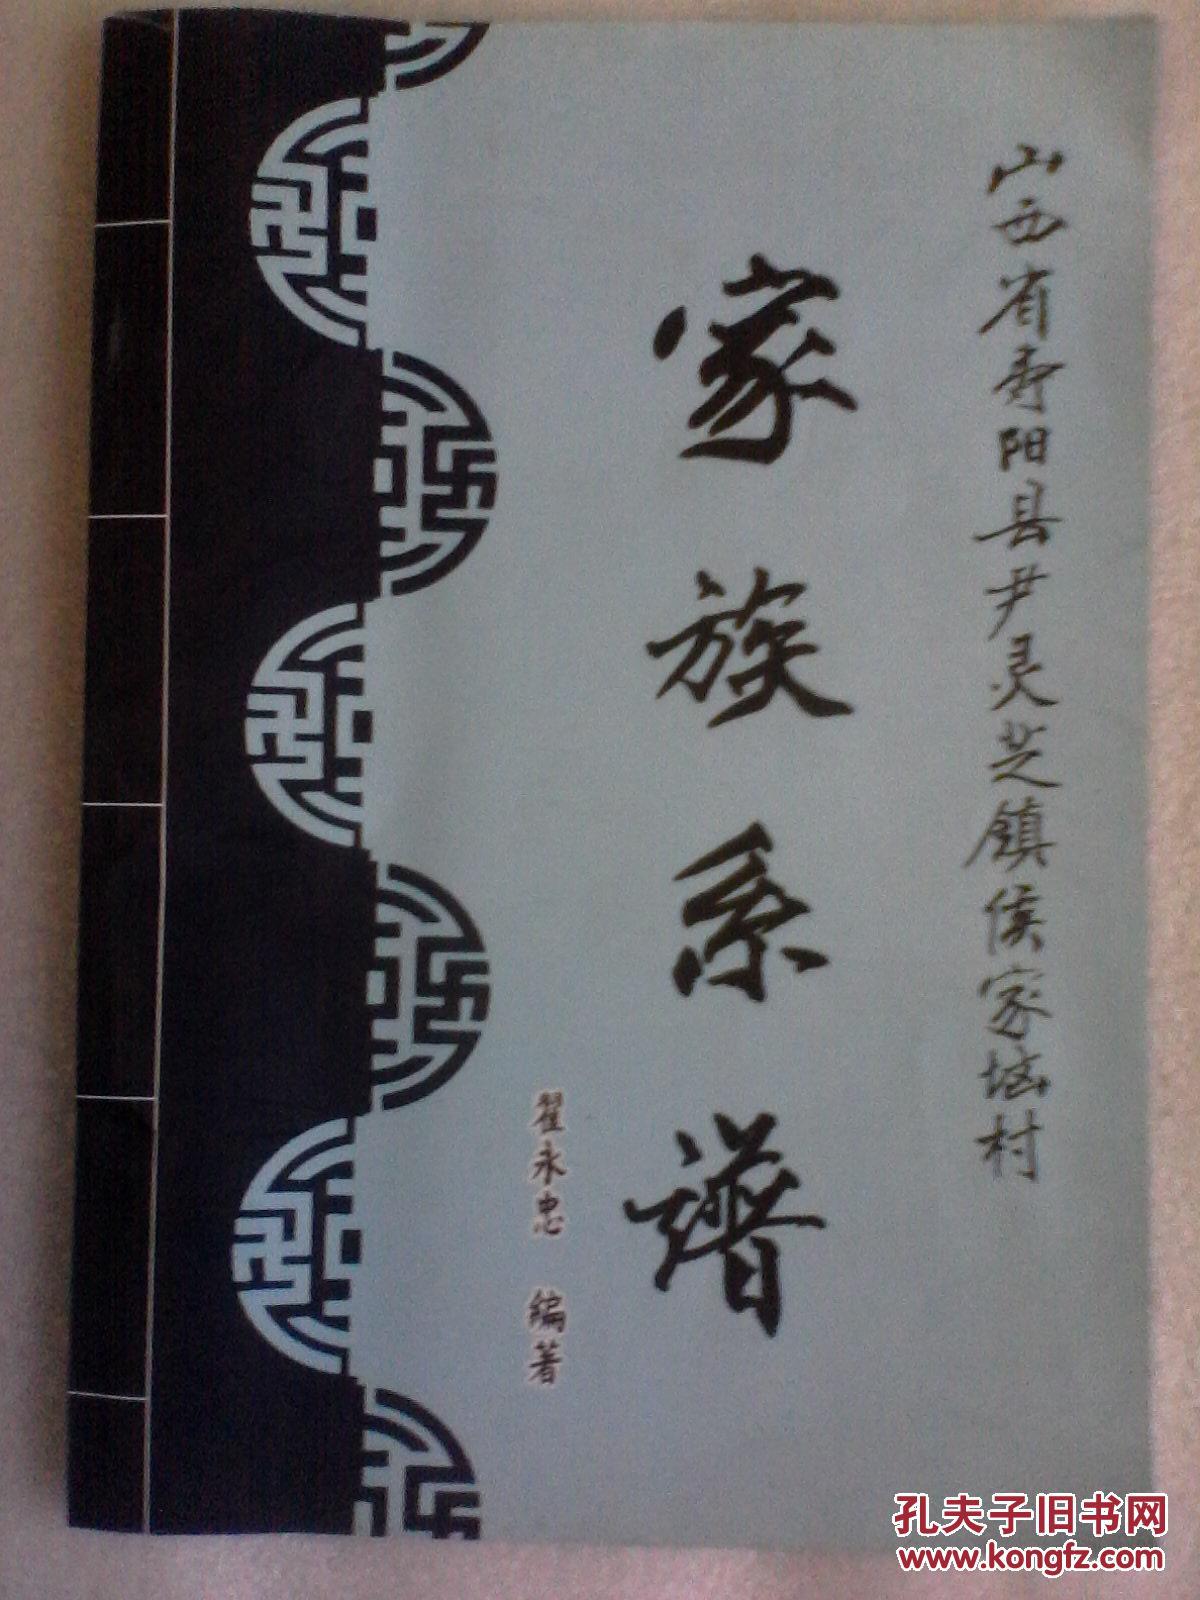 山西省寿阳县尹灵芝镇侯家垴村
家族系谱
翟永忠 编著
孔夫子旧书网
www.kongfz.com